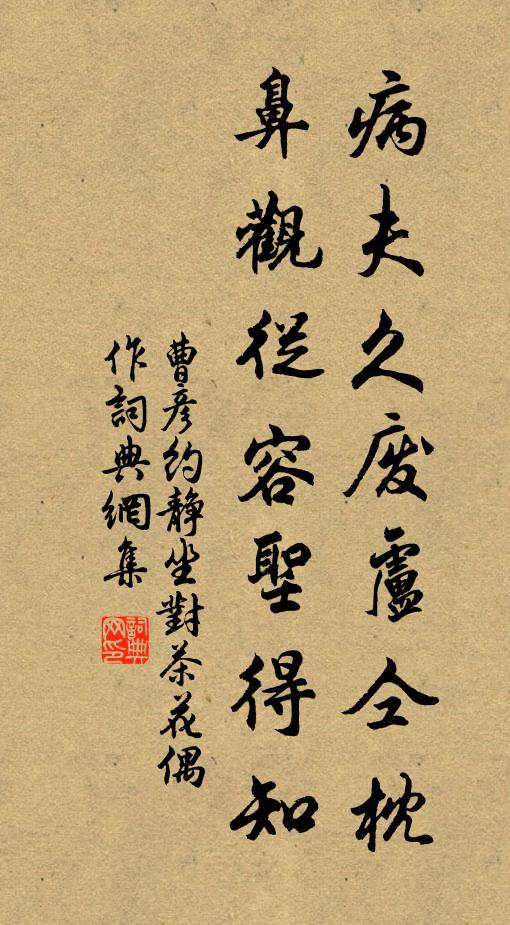 病夫久廢盧仝枕
鼻觀從容聖得知
曹彥約靜坐對茶花偶
作詞典網集
詞典网印